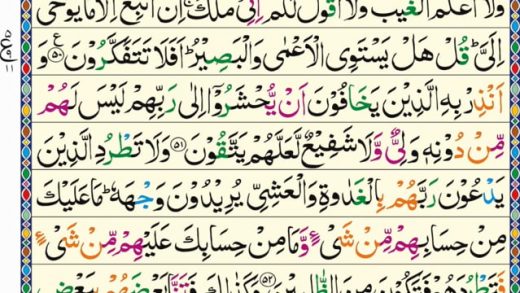 وَلَاۤ اَعْلَمُ الْغَيْبَ وَلَاۤ اَقُوْلُ لَكُمْ اِنِّیْ مَلَكٌ ۚ اِنْ اَتَّبِعُ اِلَّا مَا يُوْحٰۤى
اِلَیَّ ؕ قُلْ هَلْ يَسْتَوِى الْاَعْمٰى وَالْبَصِيْرُ ؕ اَفَلَا تَتَفَكَّرُوْنَ ﴿۵۰﴾ وَ
اَنْذِرْ بِهِ الَّذِيْنَ يَخَافُوْنَ اَنْ يُّحْشَرُوْۤا اِلٰى رَبِّهِمْ لَيْسَ لَهُمْ
مِّنْ دُوْنِهٖ وَلِىٌّ وَّلَا شَفِيْعٌ لَّعَلَّهُمْ يَتَّقُوْنَ ﴿۵۱﴾ وَلَا تَطْرُدِ الَّذِيْنَ
يَدْعُوْنَ رَبَّهُمْ بِالْغَدٰوةِ وَالْعَشِىِّ يُرِيْدُوْنَ وَجْهَهٗ ؕ مَا عَلَيْكَ
مِنْ حِسَابِهِمْ مِّنْ شَىْءٍ وَّمَا مِنْ حِسَابِكَ عَلَيْهِمْ مِّنْ شَىْءٍ
فَتَطْرُدَهُمْ فَتَكُوْنَ مِنَ الظّٰلِمِيْنَ ﴿۵۲﴾ وَكَذٰلِكَ فَتَنَّا بَعْضَهُمْ بِبَعْضٍ